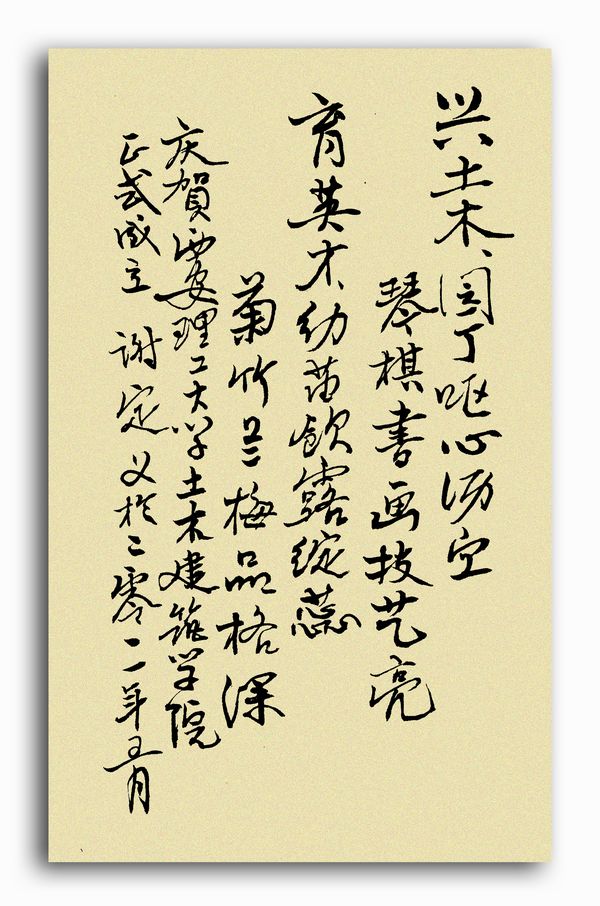 兴土木、园丁呕心沥血
琴棋书画技艺亮
育英才、幼苗饮露绽蕊
菊竹兰梅品格深
庆賀西安理工大学土木建筑学院
正式成立 谢定义於二零一一年五月